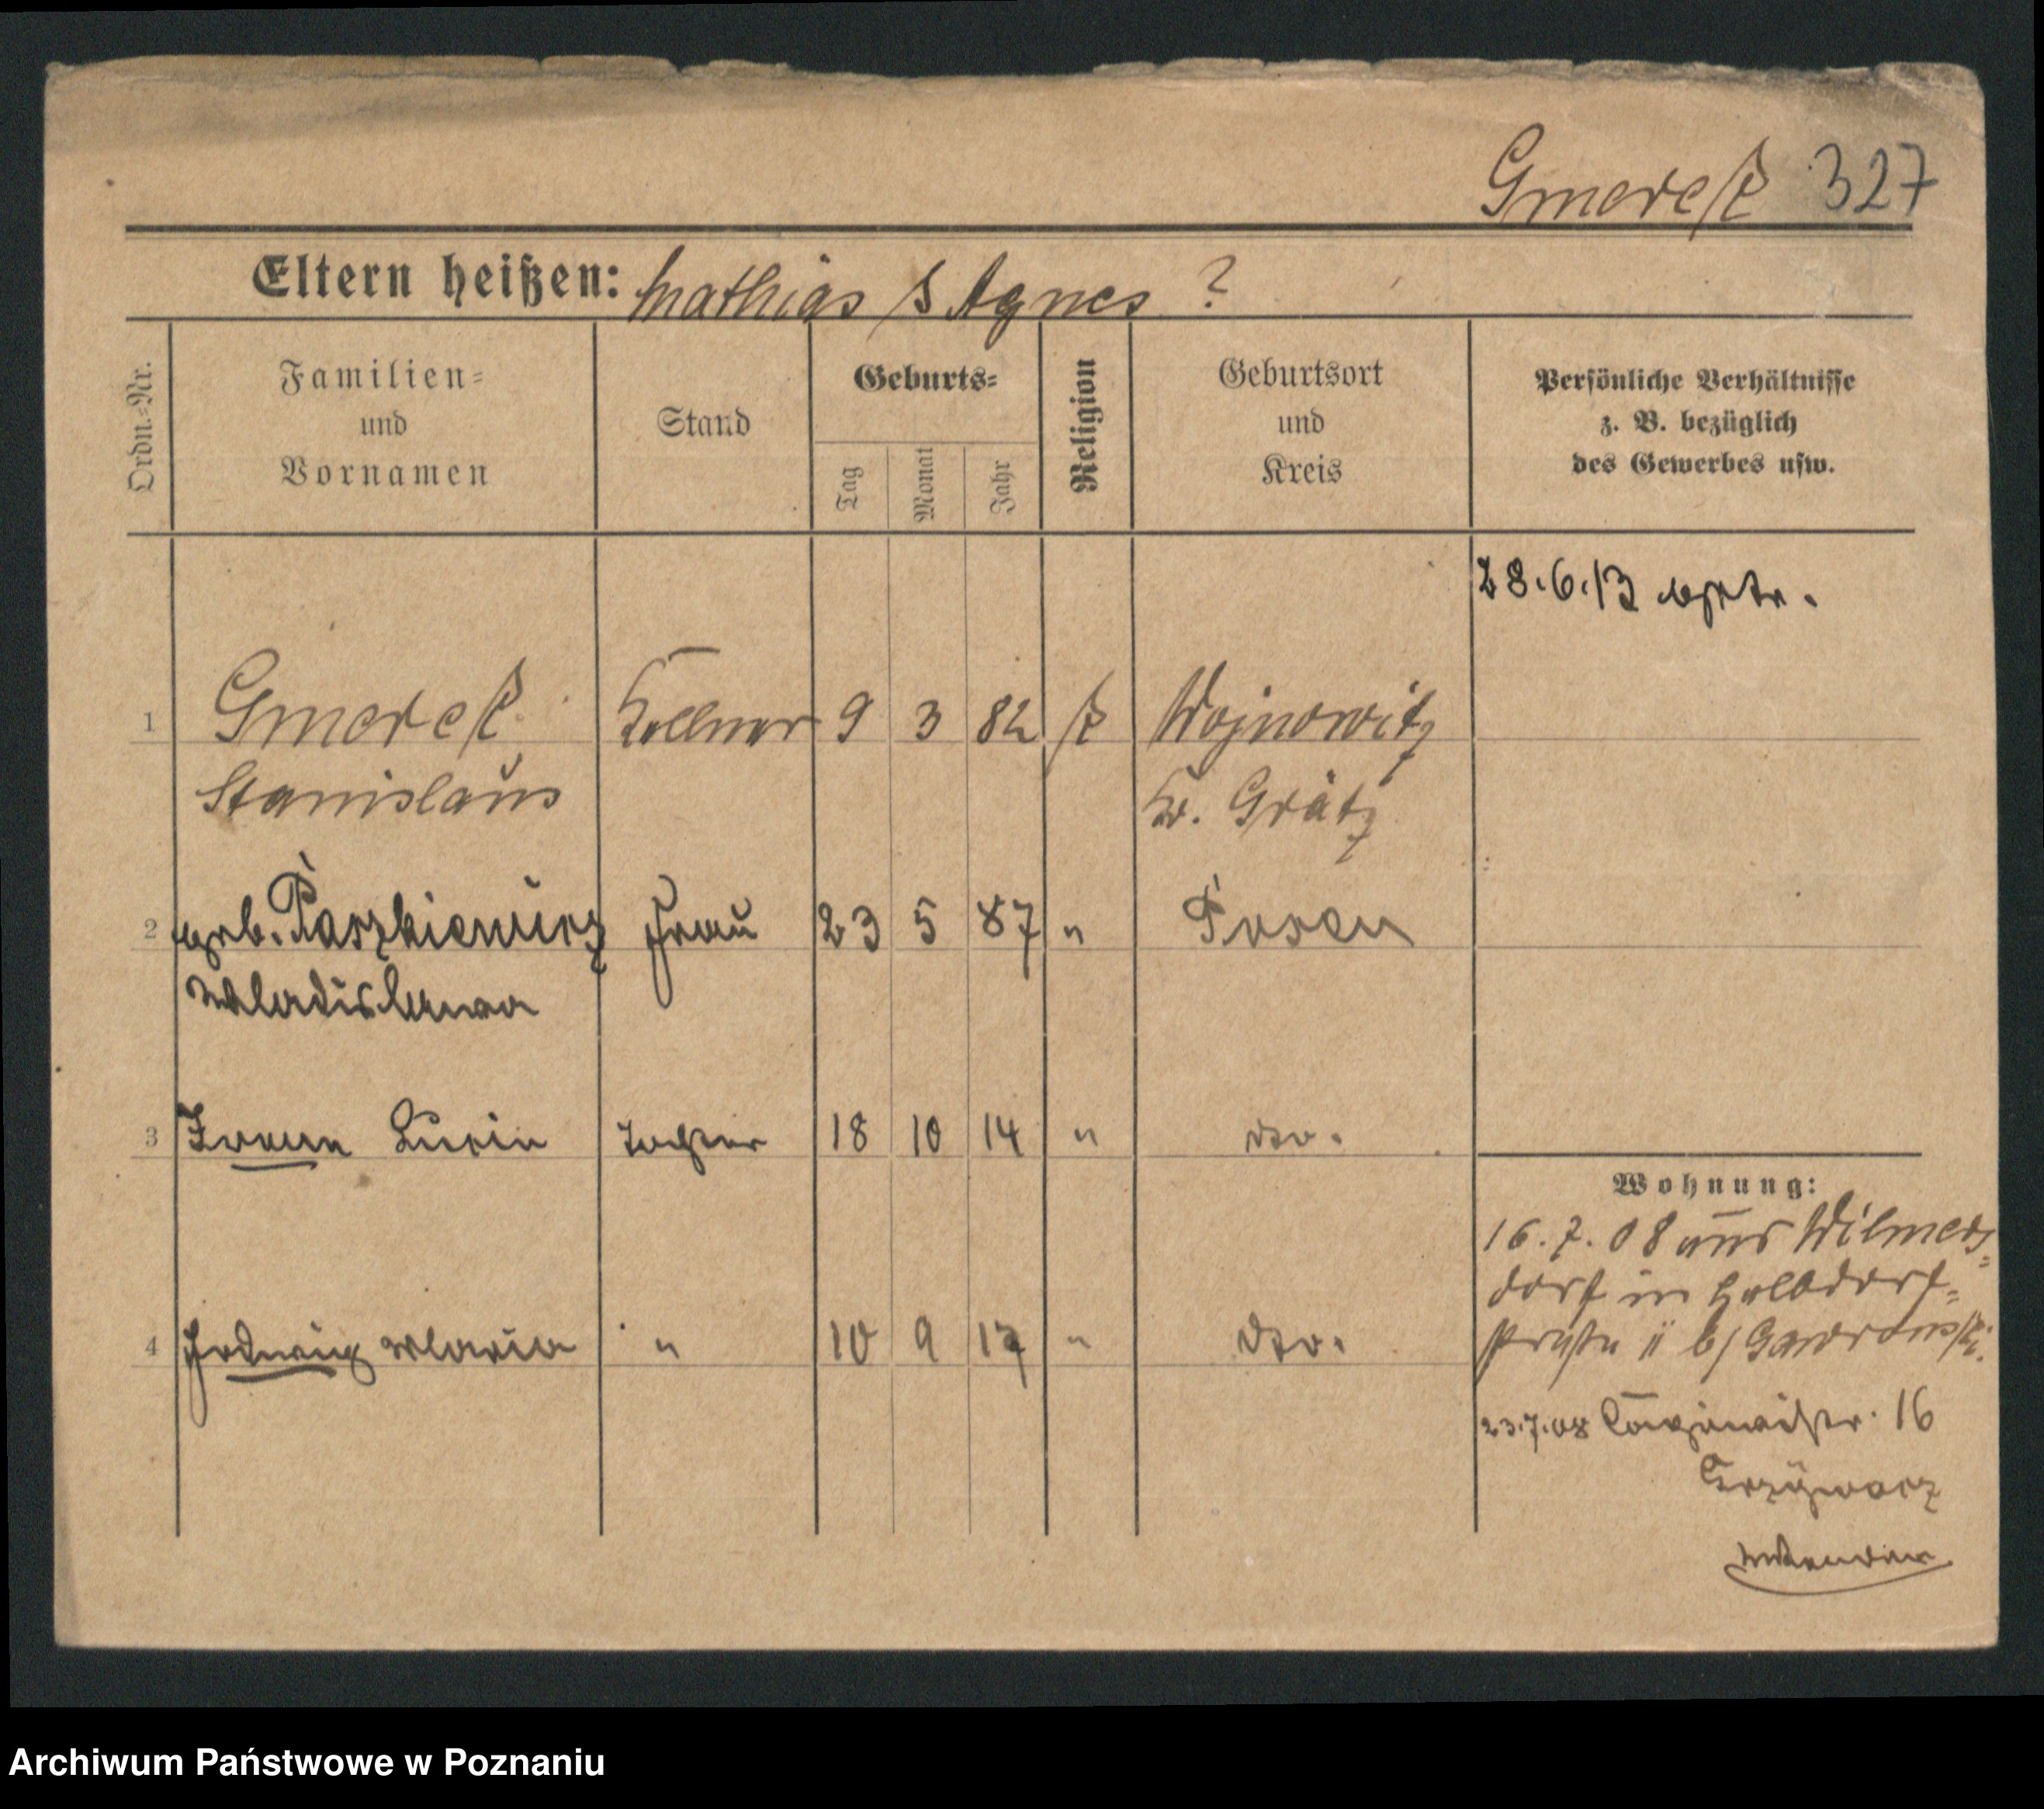 Gmerek 327
Eltern heißen: Mathias & Agnes ?
Ordn.=Nr.
Familien=
und
Vornamen
Stand
Geburts=
Tag
Monat
Jahr
Religion
Geburtsort
und
Kreis
Persönliche Verhältnisse
z. B. bezüglich
des Gewerbes usw.
28.6.13
1 Gmerek Kellner 9 3 82 k Wojnowitz
Stanislaus Kr. Grätz
2 geb. Paszkiewicz Frau 23 5 87 " Posen
Wladislawa
3 Irene Lucia Tochter 18 10 14 " dto.
Wohnung:
16.7.08 aus Wilmers=
dorf in Halbdorf=
4 Hedwig Maria " 10 9 17 " dto.
straße 11 b/ Gawronski.
23.7.08 16
Krzywacz
Archiwum Państwowe w Poznaniu